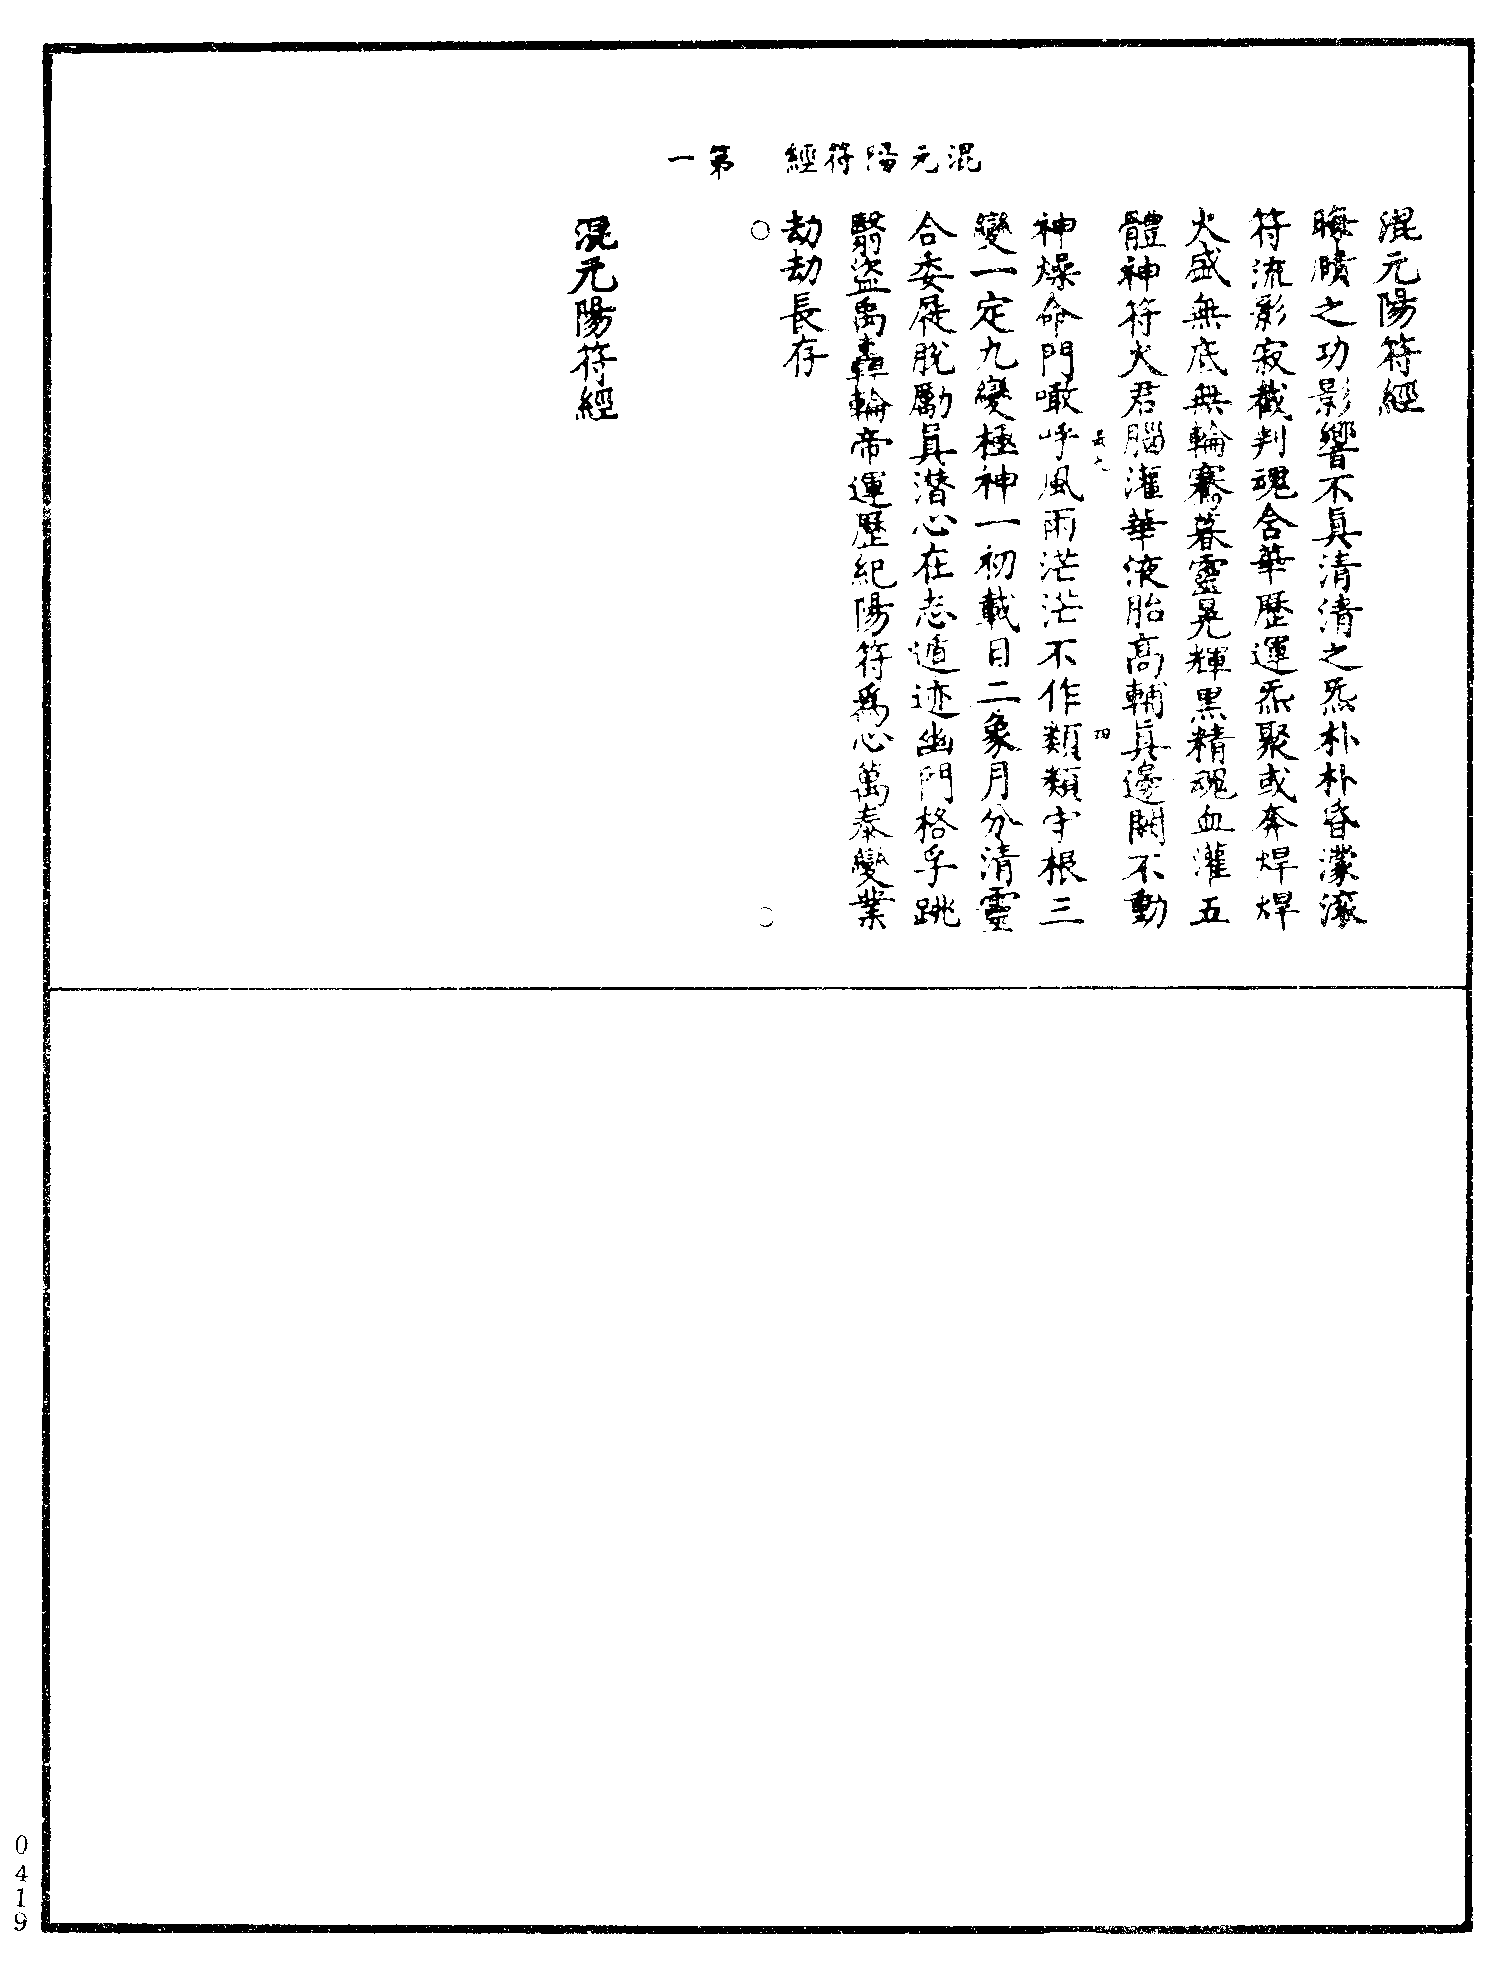 混元陽符經　第一
混元陽符經
晦賾之功影響不真清清之炁朴朴昏濛滾
符流影寂截判魂含華歷運炁聚或奔焊焊
火盛無底無輪騫暮靈晃輝黑精魂血灌五
體神符火君腦灌華液胎高輔真邊關不動
神燥命門噉呼風雨茫茫不作類類守根三
變一定九變極神一初載日二象月分清靈
合委屣脫勵真潛心在志遁迹幽門格孚跳
翳盜禹轟輪帝運歷紀陽符為心萬泰變業
劫劫長存
混元陽符經
0419